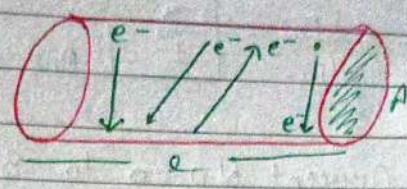 e⁻ e⁻ e⁻
e⁻ A
l